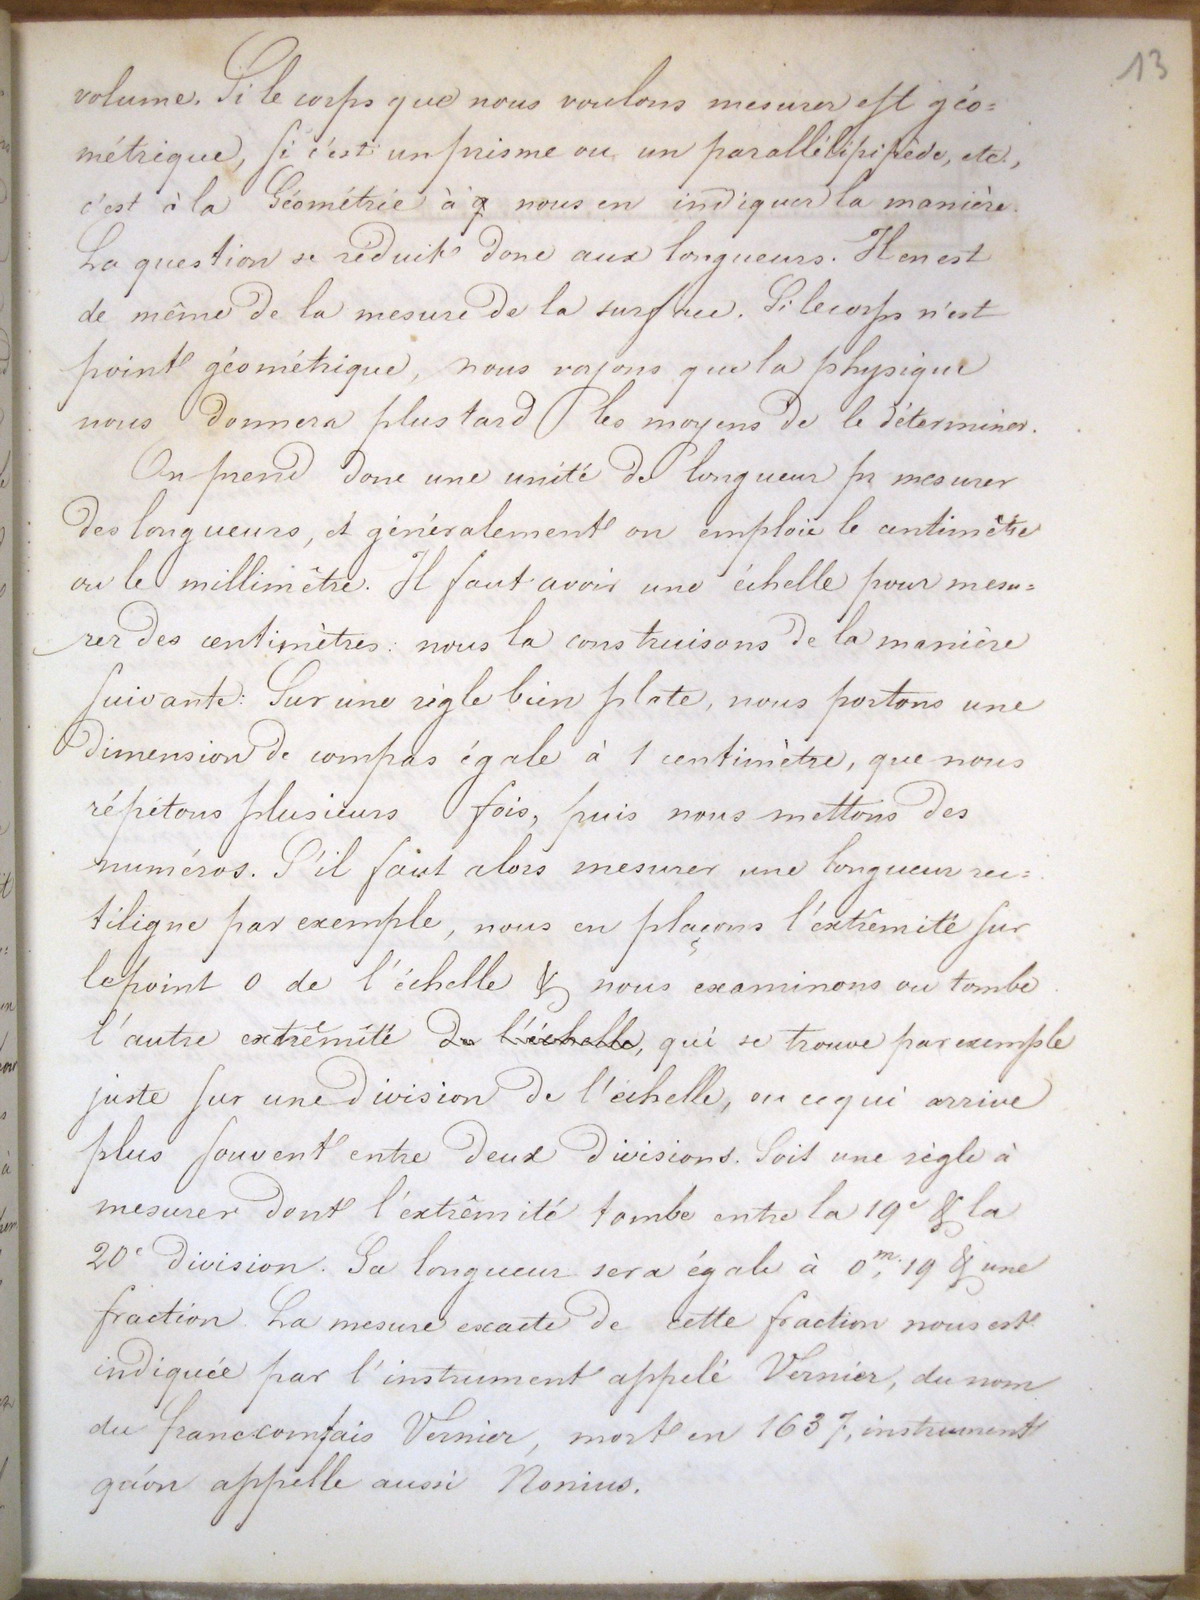 13
volume. Si le corps que nous voulons mesurer est géo=
métrique, si c'est un prisme ou un parallélipipède, etc.,
c'est à la Géométrie à nous en indiquer la manière.
La question se réduit donc aux longueurs. Il en est
de même de la mesure de la surface. Si le corps n'est
point géométrique, nous voyons que la physique
nous donnera plus tard les moyens de le déterminer.
On prend donc une unité de longueur pr mesurer
des longueurs, et généralement on emploie le centimètre
ou le millimètre. Il faut avoir une échelle pour mesu=
rer des centimètres: nous la construisons de la manière
suivante: Sur une règle bien plate, nous portons une
dimension de compas égale à 1 centimètre, que nous
répétons plusieurs fois, puis nous mettons des
numéros. S'il faut alors mesurer une longueur rec=
tiligne par exemple, nous en plaçons l'extrêmité sur
le point 0 de l'échelle & nous examinons ou tombe
l'autre extrêmité de l'échelle, qui se trouve par exemple
juste sur une division de l'échelle, ou ce qui arrive
plus souvent entre deux divisions. Soit une règle à
mesurer dont l'extrêmité tombe entre la 19e & la
20e division. Sa longueur sera égale à 0m,19 & une
fraction. La mesure exacte de cette fraction nous est
indiquée par l'instrument appelé Vernier, du nom
du franccomtais Vernier, mort en 1637, instrument
qu'on appelle aussi Nonius.